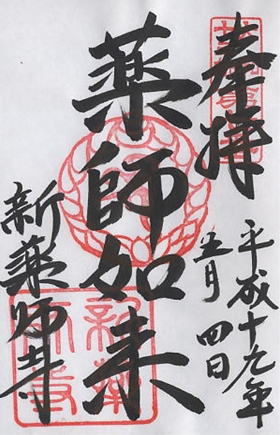 奉拝
平成十九年
五月四日
薬師如来
新薬師寺